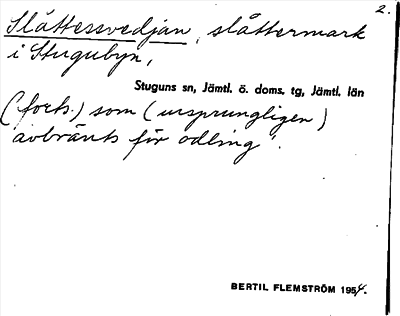 2.
Slåttessvedjan, slåttermark
i Stugubyn,
Stuguns sn, Jämtl. ö. doms. tg, Jämtl. län
(forts.) som (ursprungligen)
'avbränts för odling'.
BERTIL FLEMSTRÖM 1954.